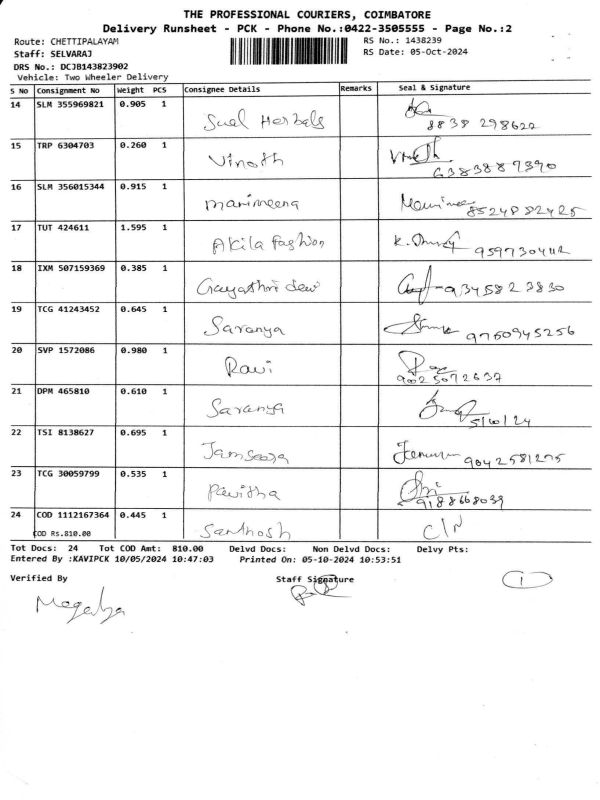 THE PROFESSIONAL COURIERS, COIMBATORE
Delivery Runsheet - PCK - Phone No.:0422-3505555 - Page No.:2
Route: CHETTIPALAYAM RS No.: 1438239
Staff: SELVARAJ RS Date: 05-Oct-2024
DRS No.: DCJB143823902
Vehicle: Two Wheeler Delivery
S No Consignment No Weight PCS Consignee Details Remarks Seal & Signature
14 SLM 355969821 0.905 1
Herbals
8838 298622
15 TRP 6304703 0.260 1
Vinoth
6383889390
16 SLM 356015344 0.915 1
marimeena
8524882425
17 TUT 424611 1.595 1
Akila fashion
18 IXM 507159369 0.385 1
Gayathri devi
9345823830
19 TCG 41243452 0.645 1
Saranya
9750945256
20 SVP 1572086 0.980 1
Ravi
9025072637
21 DPM 465810 0.610 1
Saranya
5/10/24
22 TSI 8138627 0.695 1
9042581295
23 TCG 30059799 0.535 1
Pavitha
9188668039
24 COD 1112167364 0.445 1
COD Rs.810.00
Santhosh C/N
Tot Docs: 24 Tot COD Amt: 810.00 Delvd Docs: Non Delvd Docs: Delvy Pts:
Entered By :KAVIPCK 10/05/2024 10:47:03 Printed On: 05-10-2024 10:53:51
Verified By Staff Signature
1